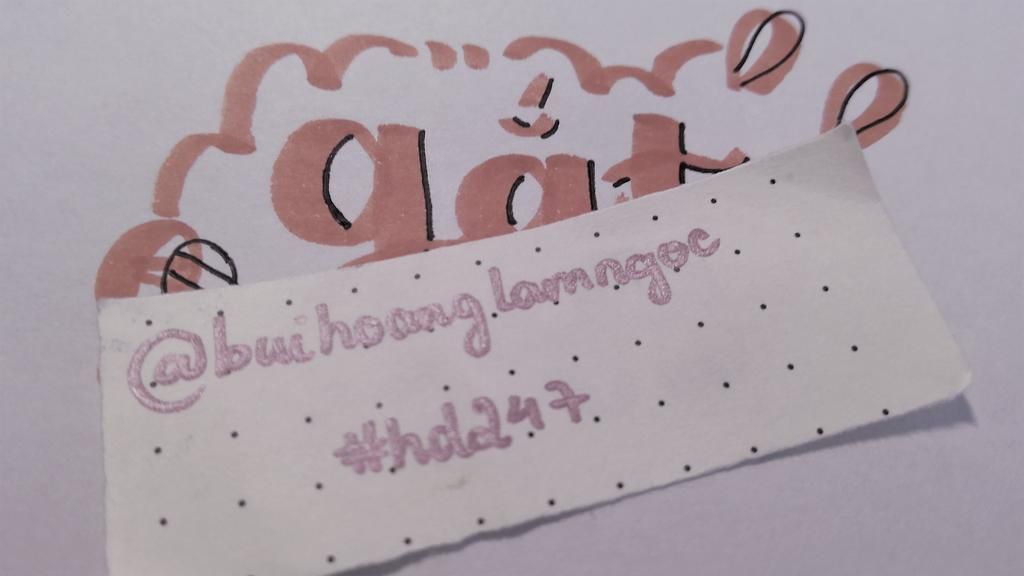 gắt
@buihoanglamngoc
#hd247